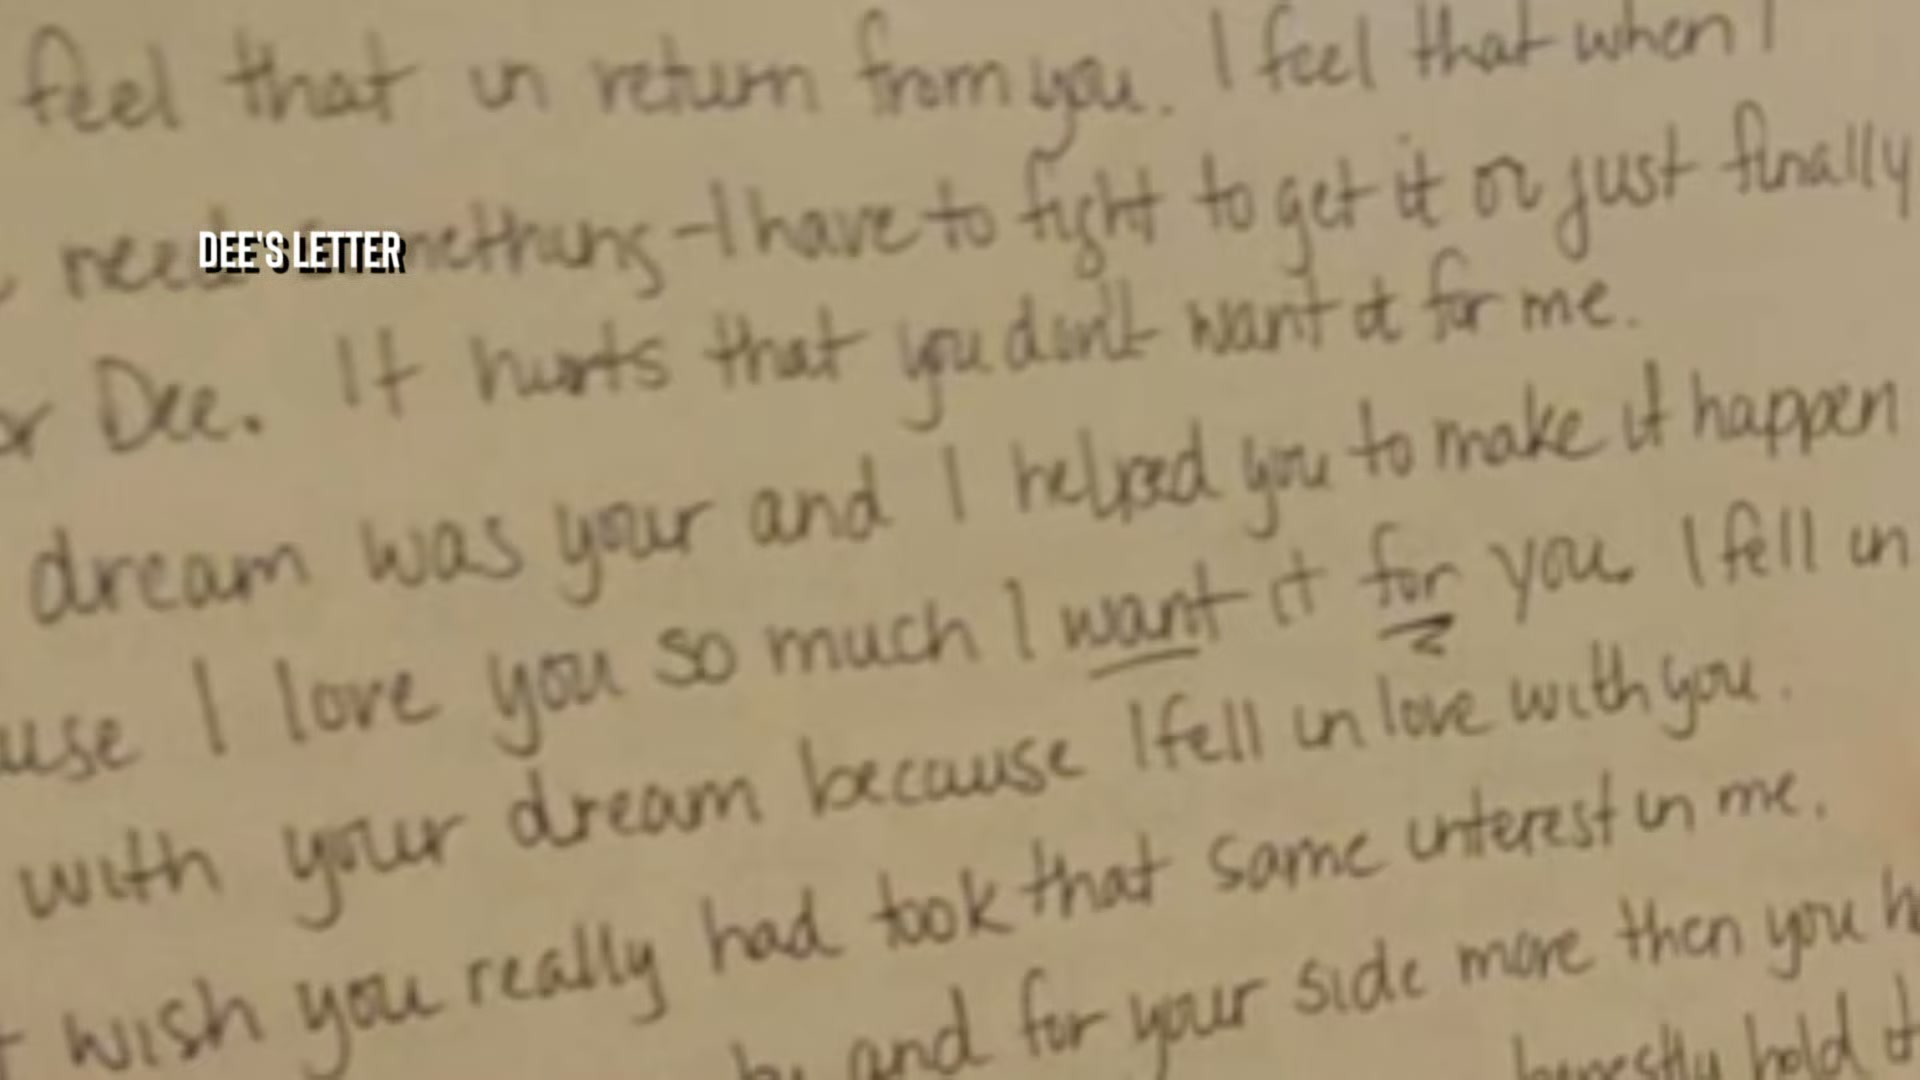 feel that in return from you. I feel that when I
need something - I have to fight to get it or just finally
DEE'S LETTER
or Dee. It hurts that you don't want it for me.
dream was your and I helped you to make it happen
use I love you so much I want it for you. I fell in
with your dream because I fell in love with you.
wish you really had took that same interest in me.
by and for your side more then you h
honestly hold